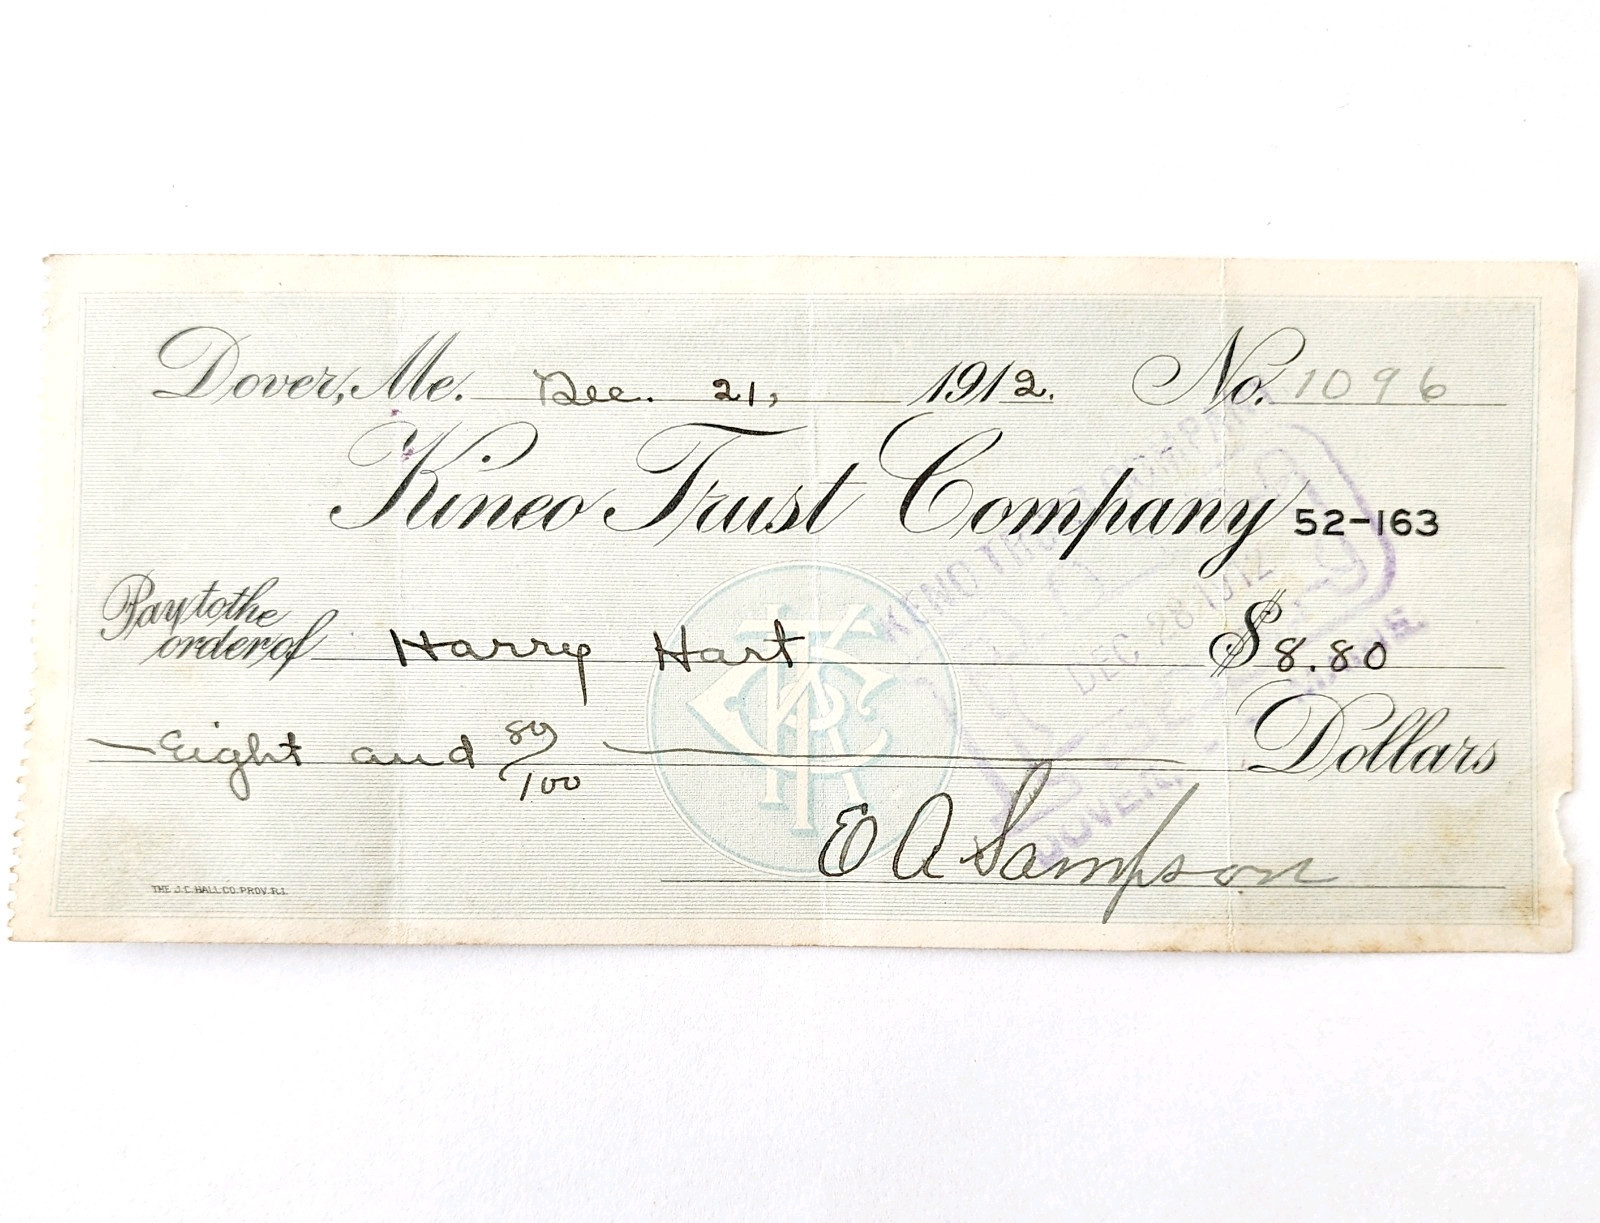 Dover, Me. Dec. 21, 1912. No. 1096
Kineo Trust Company 52-163
Pay to the
order of Harry Hart $8.80
Eight and 80/100 Dollars
E A Sampson
THE J.C. HALL CO. PROV. R.I.
KTC
DEC 28 1912
DOVER, MAINE.